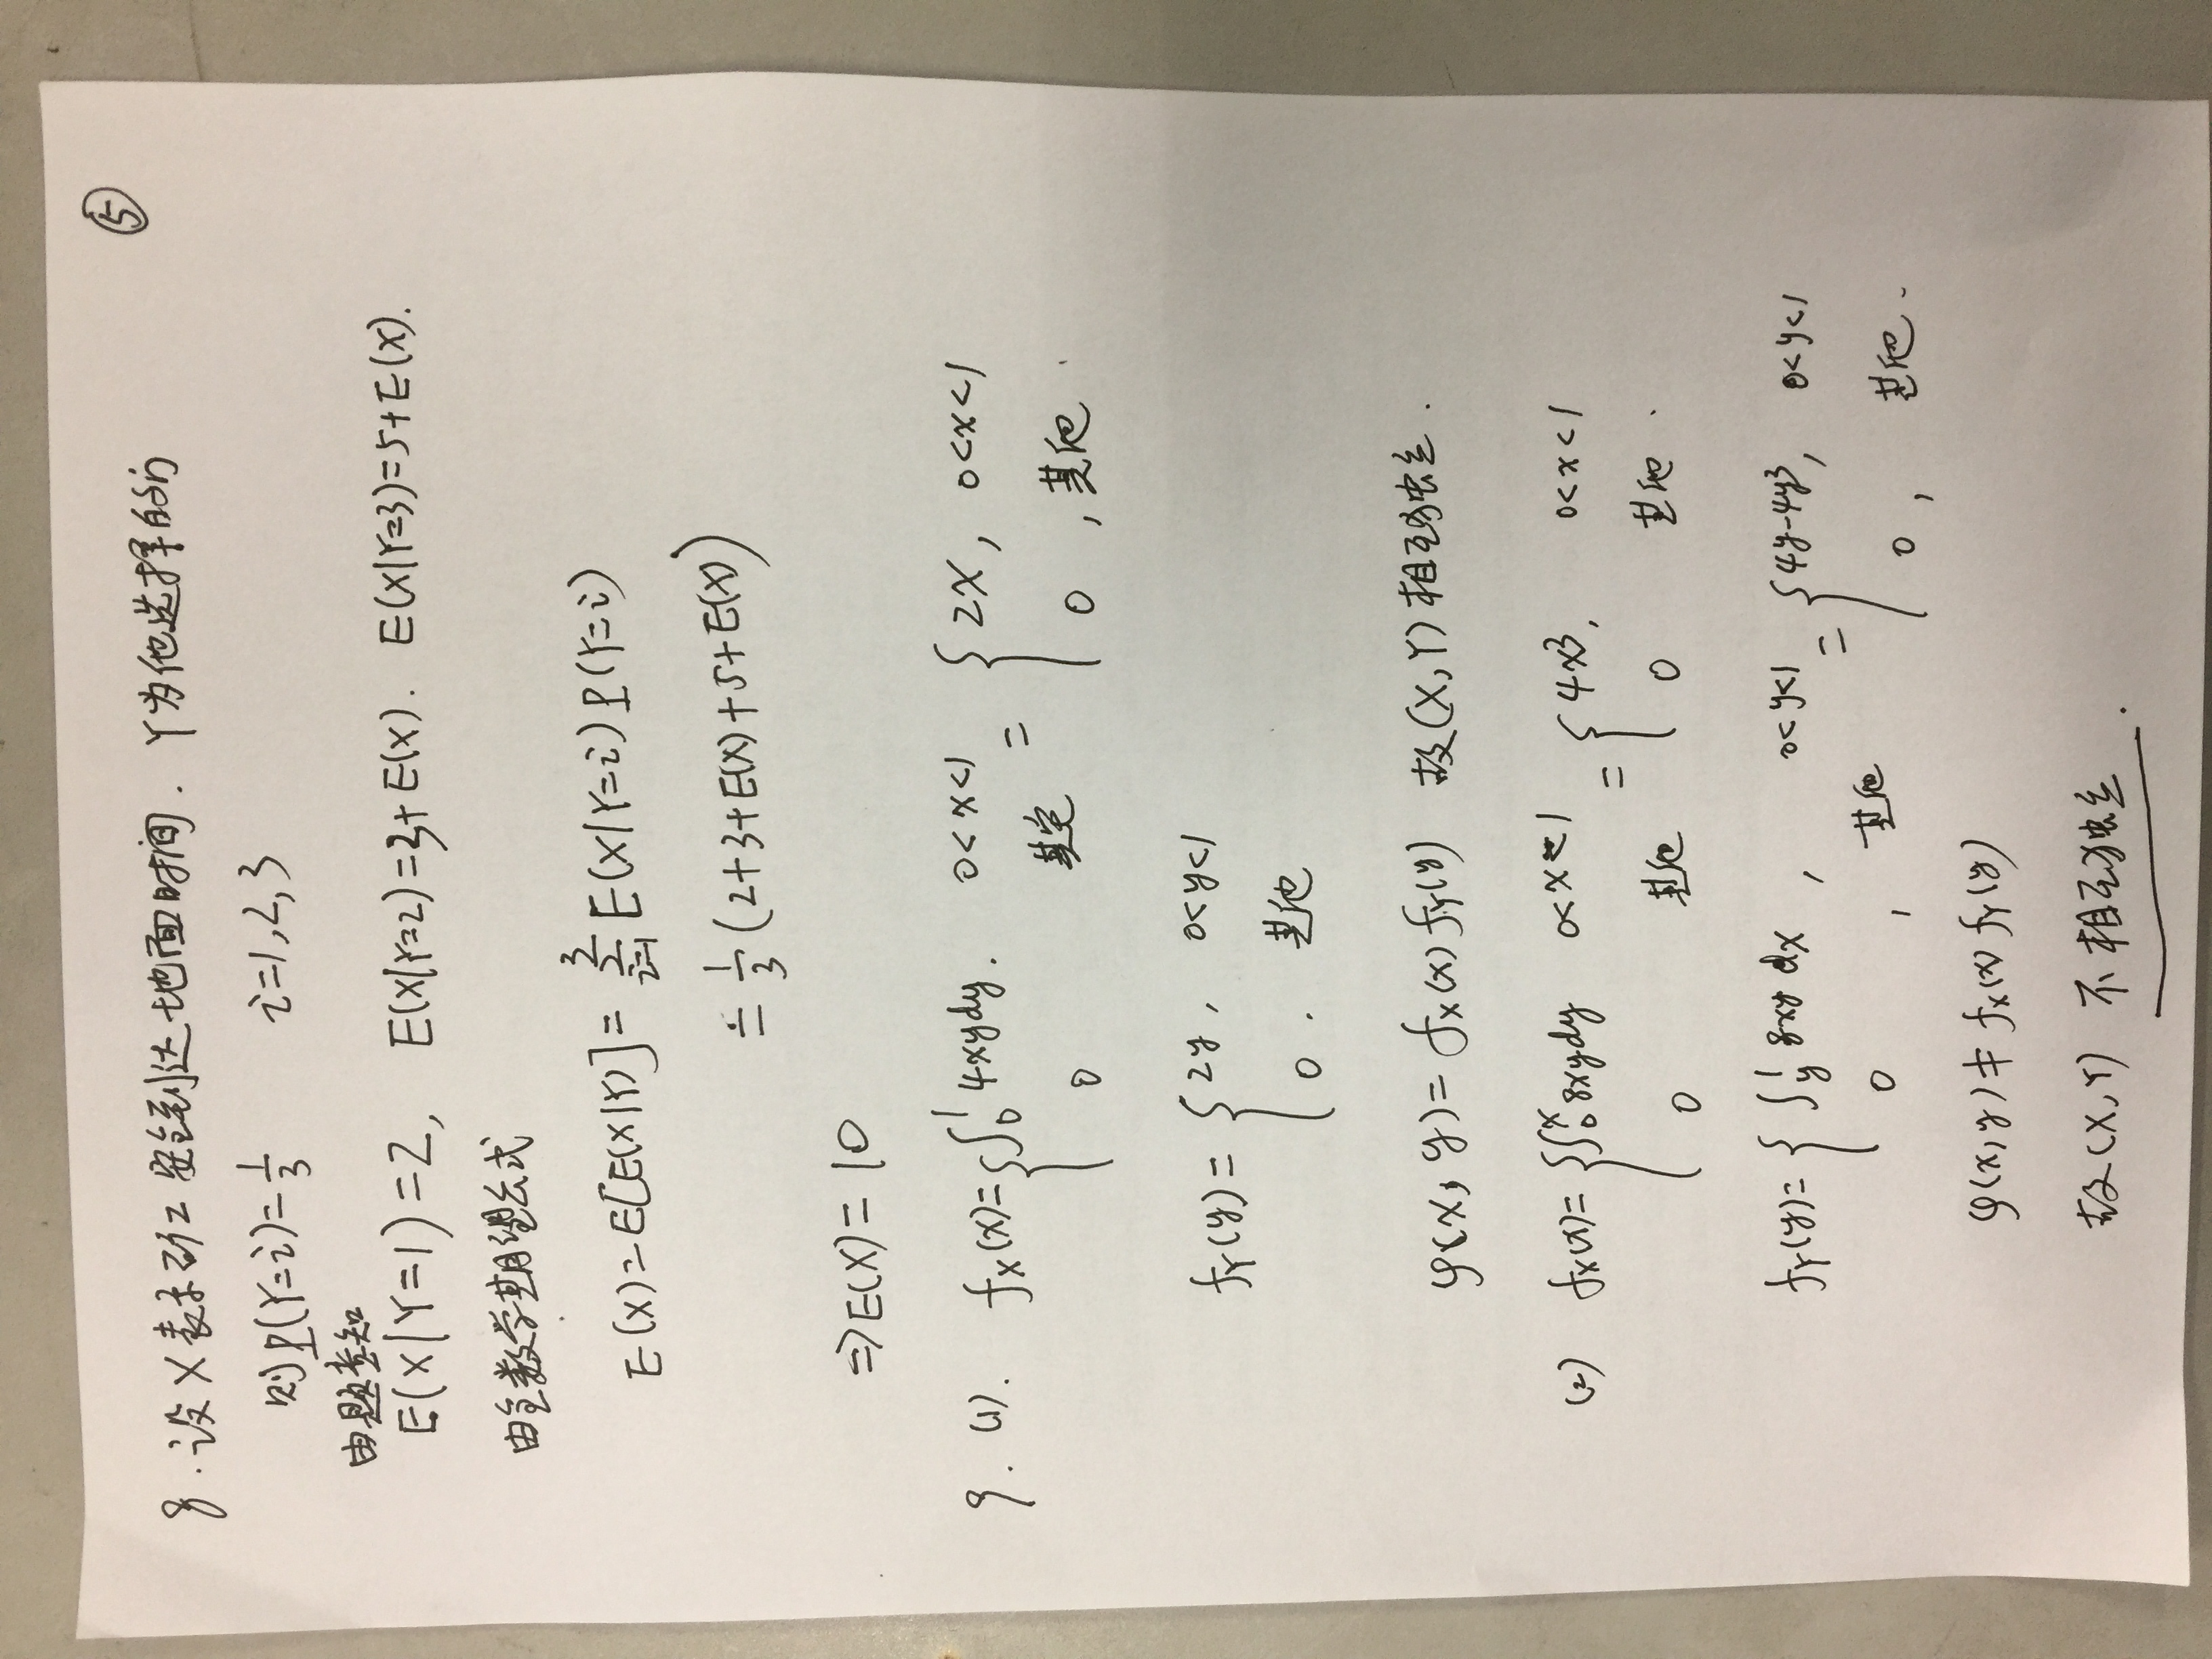 ⑤
8. 设X表示矿工安全到达地面时间. Y为他选择的门
则P(Y=i)=1/3 i=1,2,3
由题意知
E(X|Y=1)=2, E(X|Y=2)=3+E(X). E(X|Y=3)=5+E(X).
由全数学期望公式
E(X)=E[E(X|Y)]=∑_{i=1}^{3} E(X|Y=i)P(Y=i)
=1/3(2+3+E(X)+5+E(X))
⇒E(X)=10
9. (1). f_X(x)={∫_0^1 4xydy. 0<x<1 = {2x, 0<x<1
0 其它 0, 其他.
f_Y(y)={2y, 0<y<1
0. 其他
φ(x,y)=f_X(x)f_Y(y) 故(X,Y)相互独立.
(2) f_X(x)={∫_0^x 8xydy 0<x<1 = {4x³, 0<x<1
0 其他 0 其他.
f_Y(y)={∫_y^1 8xy dx, 0<y<1 = {4y-4y³, 0<y<1
0, 其他 0, 其他.
φ(x,y)≠f_X(x)f_Y(y)
故(X,Y) 不相互独立.